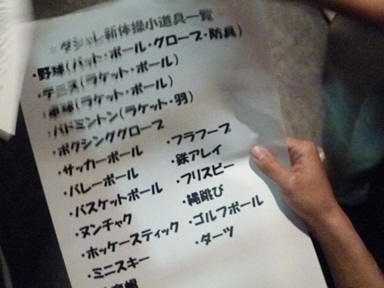 ※ダジャレ新体操小道具一覧
・野球(バット・ボール・グローブ・防具)
・テニス(ラケット・ボール)
・卓球(ラケット・ボール)
・バドミントン(ラケット・羽)
・ボクシンググローブ
・サッカーボール
・バレーボール
・バスケットボール
・ヌンチャク
・ホッケースティック
・ミニスキー
・フラフープ
・鉄アレイ
・フリスビー
・縄跳び
・ゴルフボール
・ダーツ